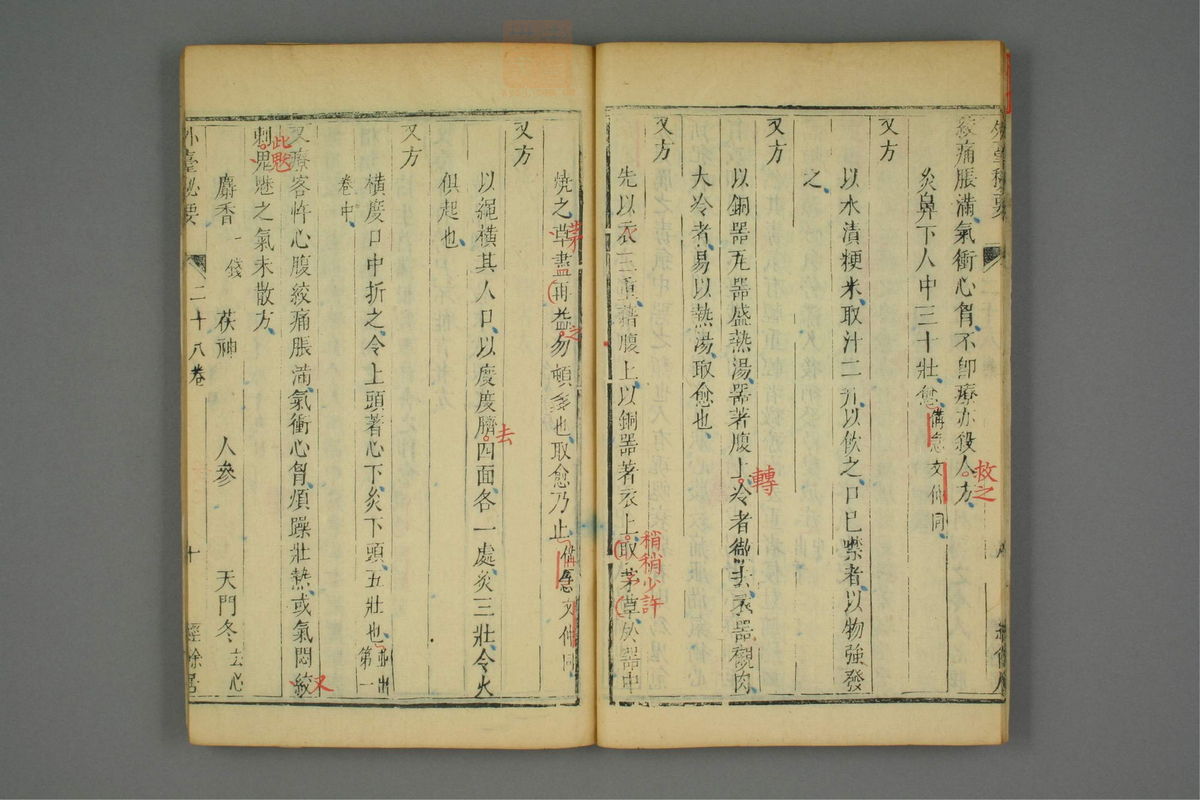 外臺秘要
絞痛脹滿氣衝心胷不卽療亦殺人方
救之
灸鼻下人中三十壯愈備急文仲同
又方
以水漬粳米取汁二升以飲之口巳噤者以物強發
之
又方
以銅器瓦器盛熱湯器著腹上冷者徹去衣器襯肉
轉
大冷者易以熱湯取愈也
又方
先以衣三重藉腹上以銅器著衣上取茅草於器中
稍稍少許
燒之草盡再益勿頓多也取愈乃止備急文仲同
茅
之
又方
以繩橫其人口以度度臍四面各一處灸三壯令火
去
俱起也
又方
橫度口中折之令上頭著心下灸下頭五壯也並出第一
卷中
又療客忤心腹絞痛脹滿氣衝心胷煩躁壯熱或氣悶絞
又
刺鬼魅之氣未散方
此
麝香一錢 茯神 人參 天門冬去心
外臺秘要
二十八卷
十
經餘居